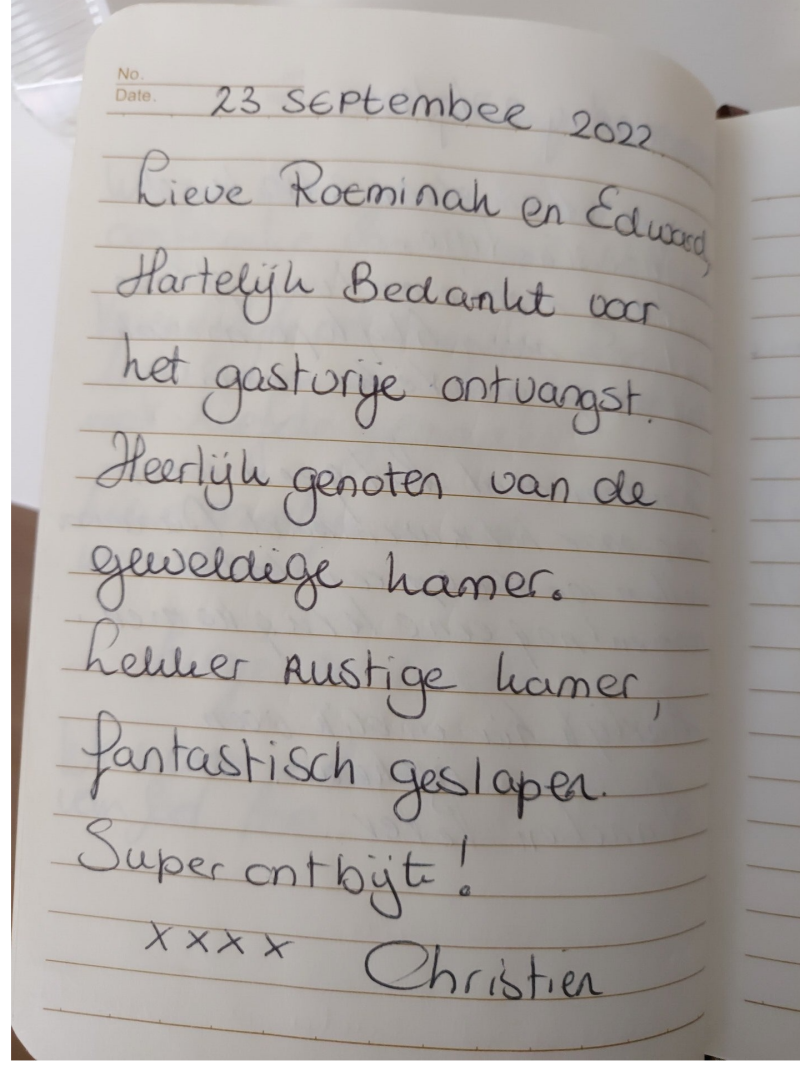 No.
Date. 23 SEPtembeR 2022
Lieve Roeminah en Edward,
Hartelijk Bedankt voor
het gastvrije ontvangst.
Heerlijk genoten van de
geweldige kamer.
Lekker Rustige kamer,
fantastisch geslapen.
Super ontbijt!
xxxx Christien